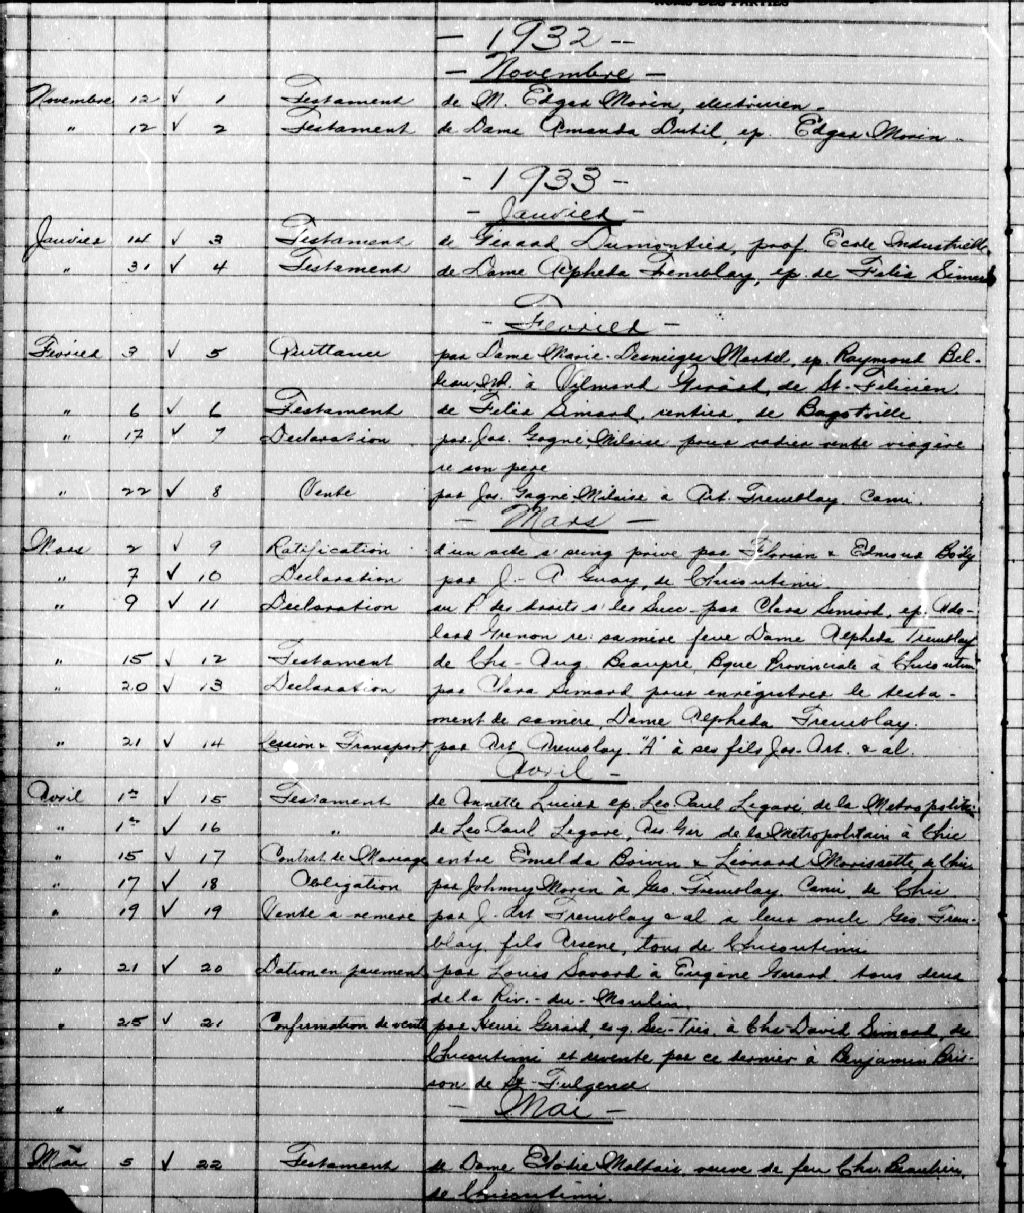 NOMS DES PARTIES
- 1932 -
- Novembre -
Novembre 12 ✓ 1 Testament de M. Edgar Morin, électricien.
" 12 ✓ 2 Testament de Dame Amanda Dutil, ep. Edgar Morin.
- 1933 -
- Janvier -
Janvier 14 ✓ 3 Testament de Gérard Dumontier, prof. Ecole Industrielle
" 31 ✓ 4 Testament de Dame Alpheda Tremblay, ep. de Felix Simard
- Fevrier -
Fevrier 3 ✓ 5 Quittance par Dame Marie-Desneiges Martel, ep. Raymond Bel-
leau à Gérard, de St-Felicien.
" 6 ✓ 6 Testament de Felix Simard, rentier, de Bagotville
" 17 ✓ 7 Declaration par Jos. Gagné Milaise pour radier rente viagère
re son pere
" 22 ✓ 8 Vente par Jos. Gagné Milaise à Art. Tremblay Cami.
- Mars -
Mars 2 ✓ 9 Ratification d'un acte s. seing privé par Florian & Edmond Boily
" 7 ✓ 10 Declaration par J. A Guay, de Chicoutimi
" 9 ✓ 11 Declaration au P. des droits s. les Succ. par Clara Simard, ep. Ade-
lard Grenon re: sa mère feue Dame Alpheda Tremblay
" 15 ✓ 12 Testament de Chs-Aug. Beaupré, Bque Provinciale à Chicoutimi
" 20 ✓ 13 Declaration par Clara Simard pour enrégistrer le testa-
ment de sa mère, Dame Alpheda Tremblay.
" 21 ✓ 14 Cession & Transport par Art. Tremblay "A" à ses fils Jos-Art. & al.
Avril -
Avril 1er ✓ 15 Testament de Annette Lucier ep. Leo Paul Legaré, de la Metropolitain
" 1er ✓ 16 " de Leo Paul Legaré, Ass. Ger. de la Metropolitain à Chic
" 15 ✓ 17 Contrat de Mariage entre Emelda Boivin & Léonard Morissette, de Chic.
" 17 ✓ 18 Obligation par Johnny Morin à Geo. Tremblay, Cami de Chic
" 19 ✓ 19 Vente a remere par J. Art Tremblay & al à leur oncle Geo. Trem-
blay fils Arsene, tous de Chicoutimi
" 21 ✓ 20 Dation en paiement par Louis Savard à Eugène Gerard, tous deux
de la Riv.-du-Moulin.
" 25 ✓ 21 Confirmation de vente par Henri Girard, es-q. Sec-Tres. à Chs-David Simard, de
Chicoutimi et revente par ce dernier à Benjamin Bris-
son de St-Fulgence
"
- Mai -
Mai 5 ✓ 22 Testament de Dame Maltais, veuve de feu Chs. Beaulieu,
de Chicoutimi.